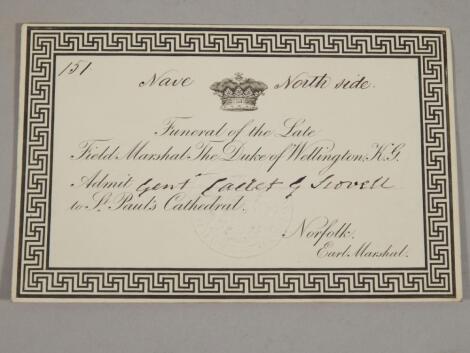 151
Nave North side.
Funeral of the Late
Field Marshal The Duke of Wellington, K.G.
Admit Gent Cadet G
to St. Paul's Cathedral.
Norfolk.
Earl Marshal.